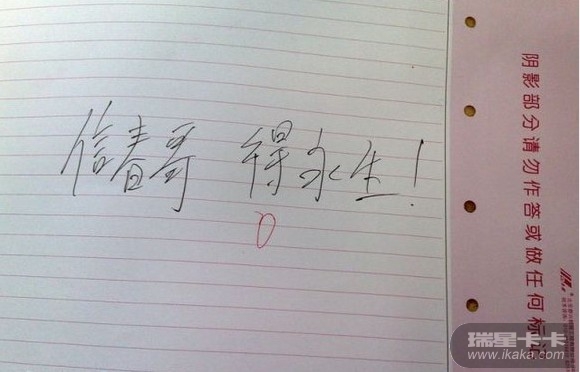 信春哥 得永生!
0
阴影部分请勿作答或做任何标
瑞星卡卡
www.ikaka.com